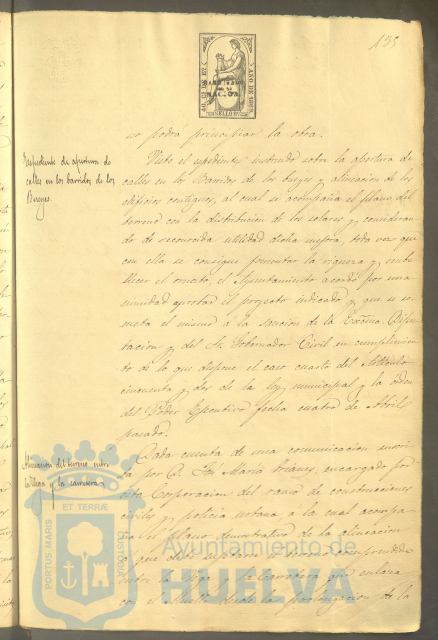 135
no podrá principiar la obra.
Espediente de apertura de
calles en los barrios de los
Bueyes.
Visto el espediente instruido sobre la apertura de
calles en los Barrios de los Bueyes y alineacion de los
edificios contiguos, al cual se acompaña el plano del
terreno con la distribucion de los solares y consideran
do de reconocida utilidad dicha mejora, toda vez que
con ella se consigue fomentar la riqueza y embe
llecer el ornato, el Ayuntamiento acordó por una
nimidad aprobar el proyecto indicado y que se so
meta el mismo á la sancion de la Excma. Dipu
tacion y del Sr. Gobernador Civil en cumplimien
to de lo que dispone el caso cuarto del Artículo
cincuenta y dos de la ley municipal y la órden
del Poder Ejecutivo fecha cuatro de Abril
pasado.
Alineacion del terreno entre
la Vega y la carretera
Dada cuenta de una comunicacion suscri
ta por D. José María encargado por
esta Corporacion del ramo de construcciones
civiles y policia urbana, á la cual acompa
ña el plano demostrativo de la alineacion
que debe
entre la Vega y la Carretera que enlaza
con el Muelle desde la prolongacion de la
PORTUS MARIS
ET TERRÆ
CUSTODIA
Ayuntamiento de
HUELVA